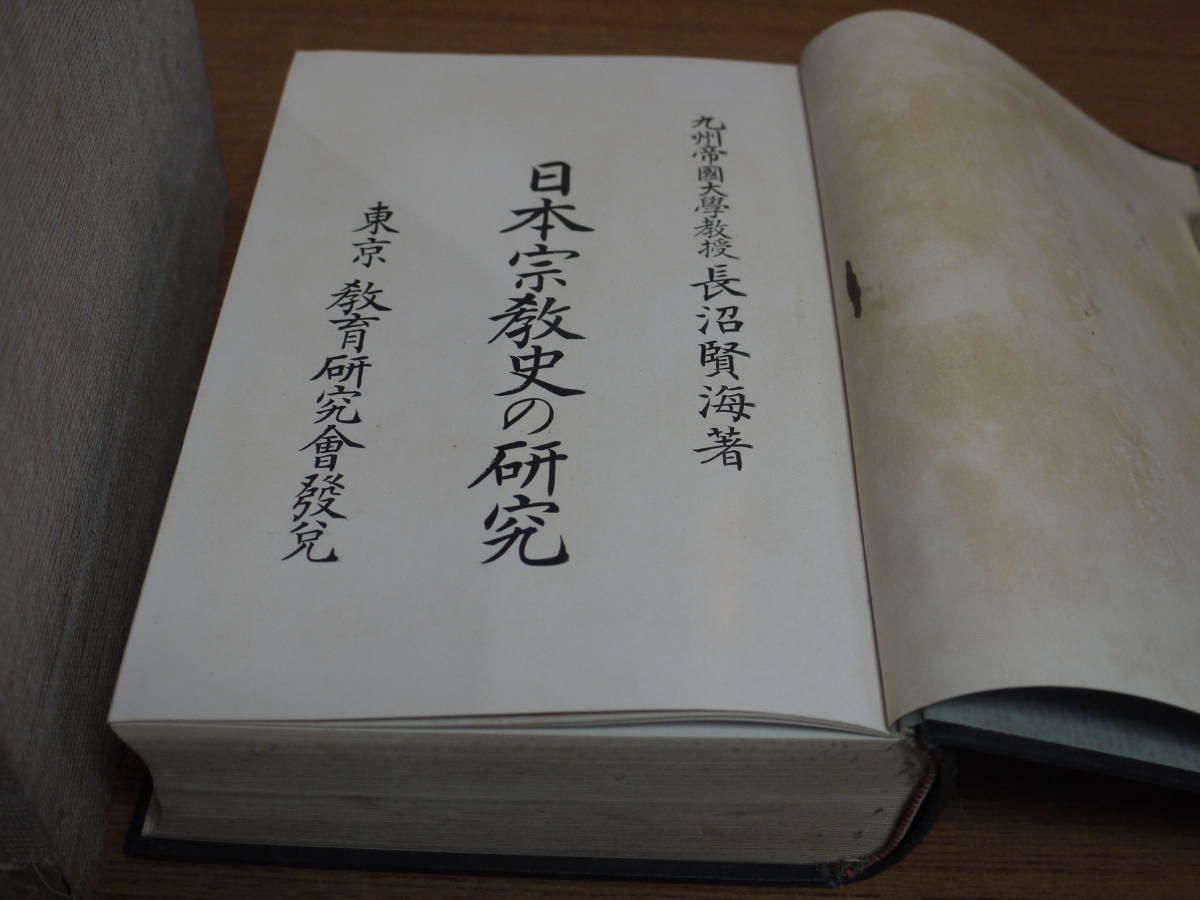 九州帝國大學教授 長沼賢海著
日本宗教史の研究
東京 教育研究會發兌